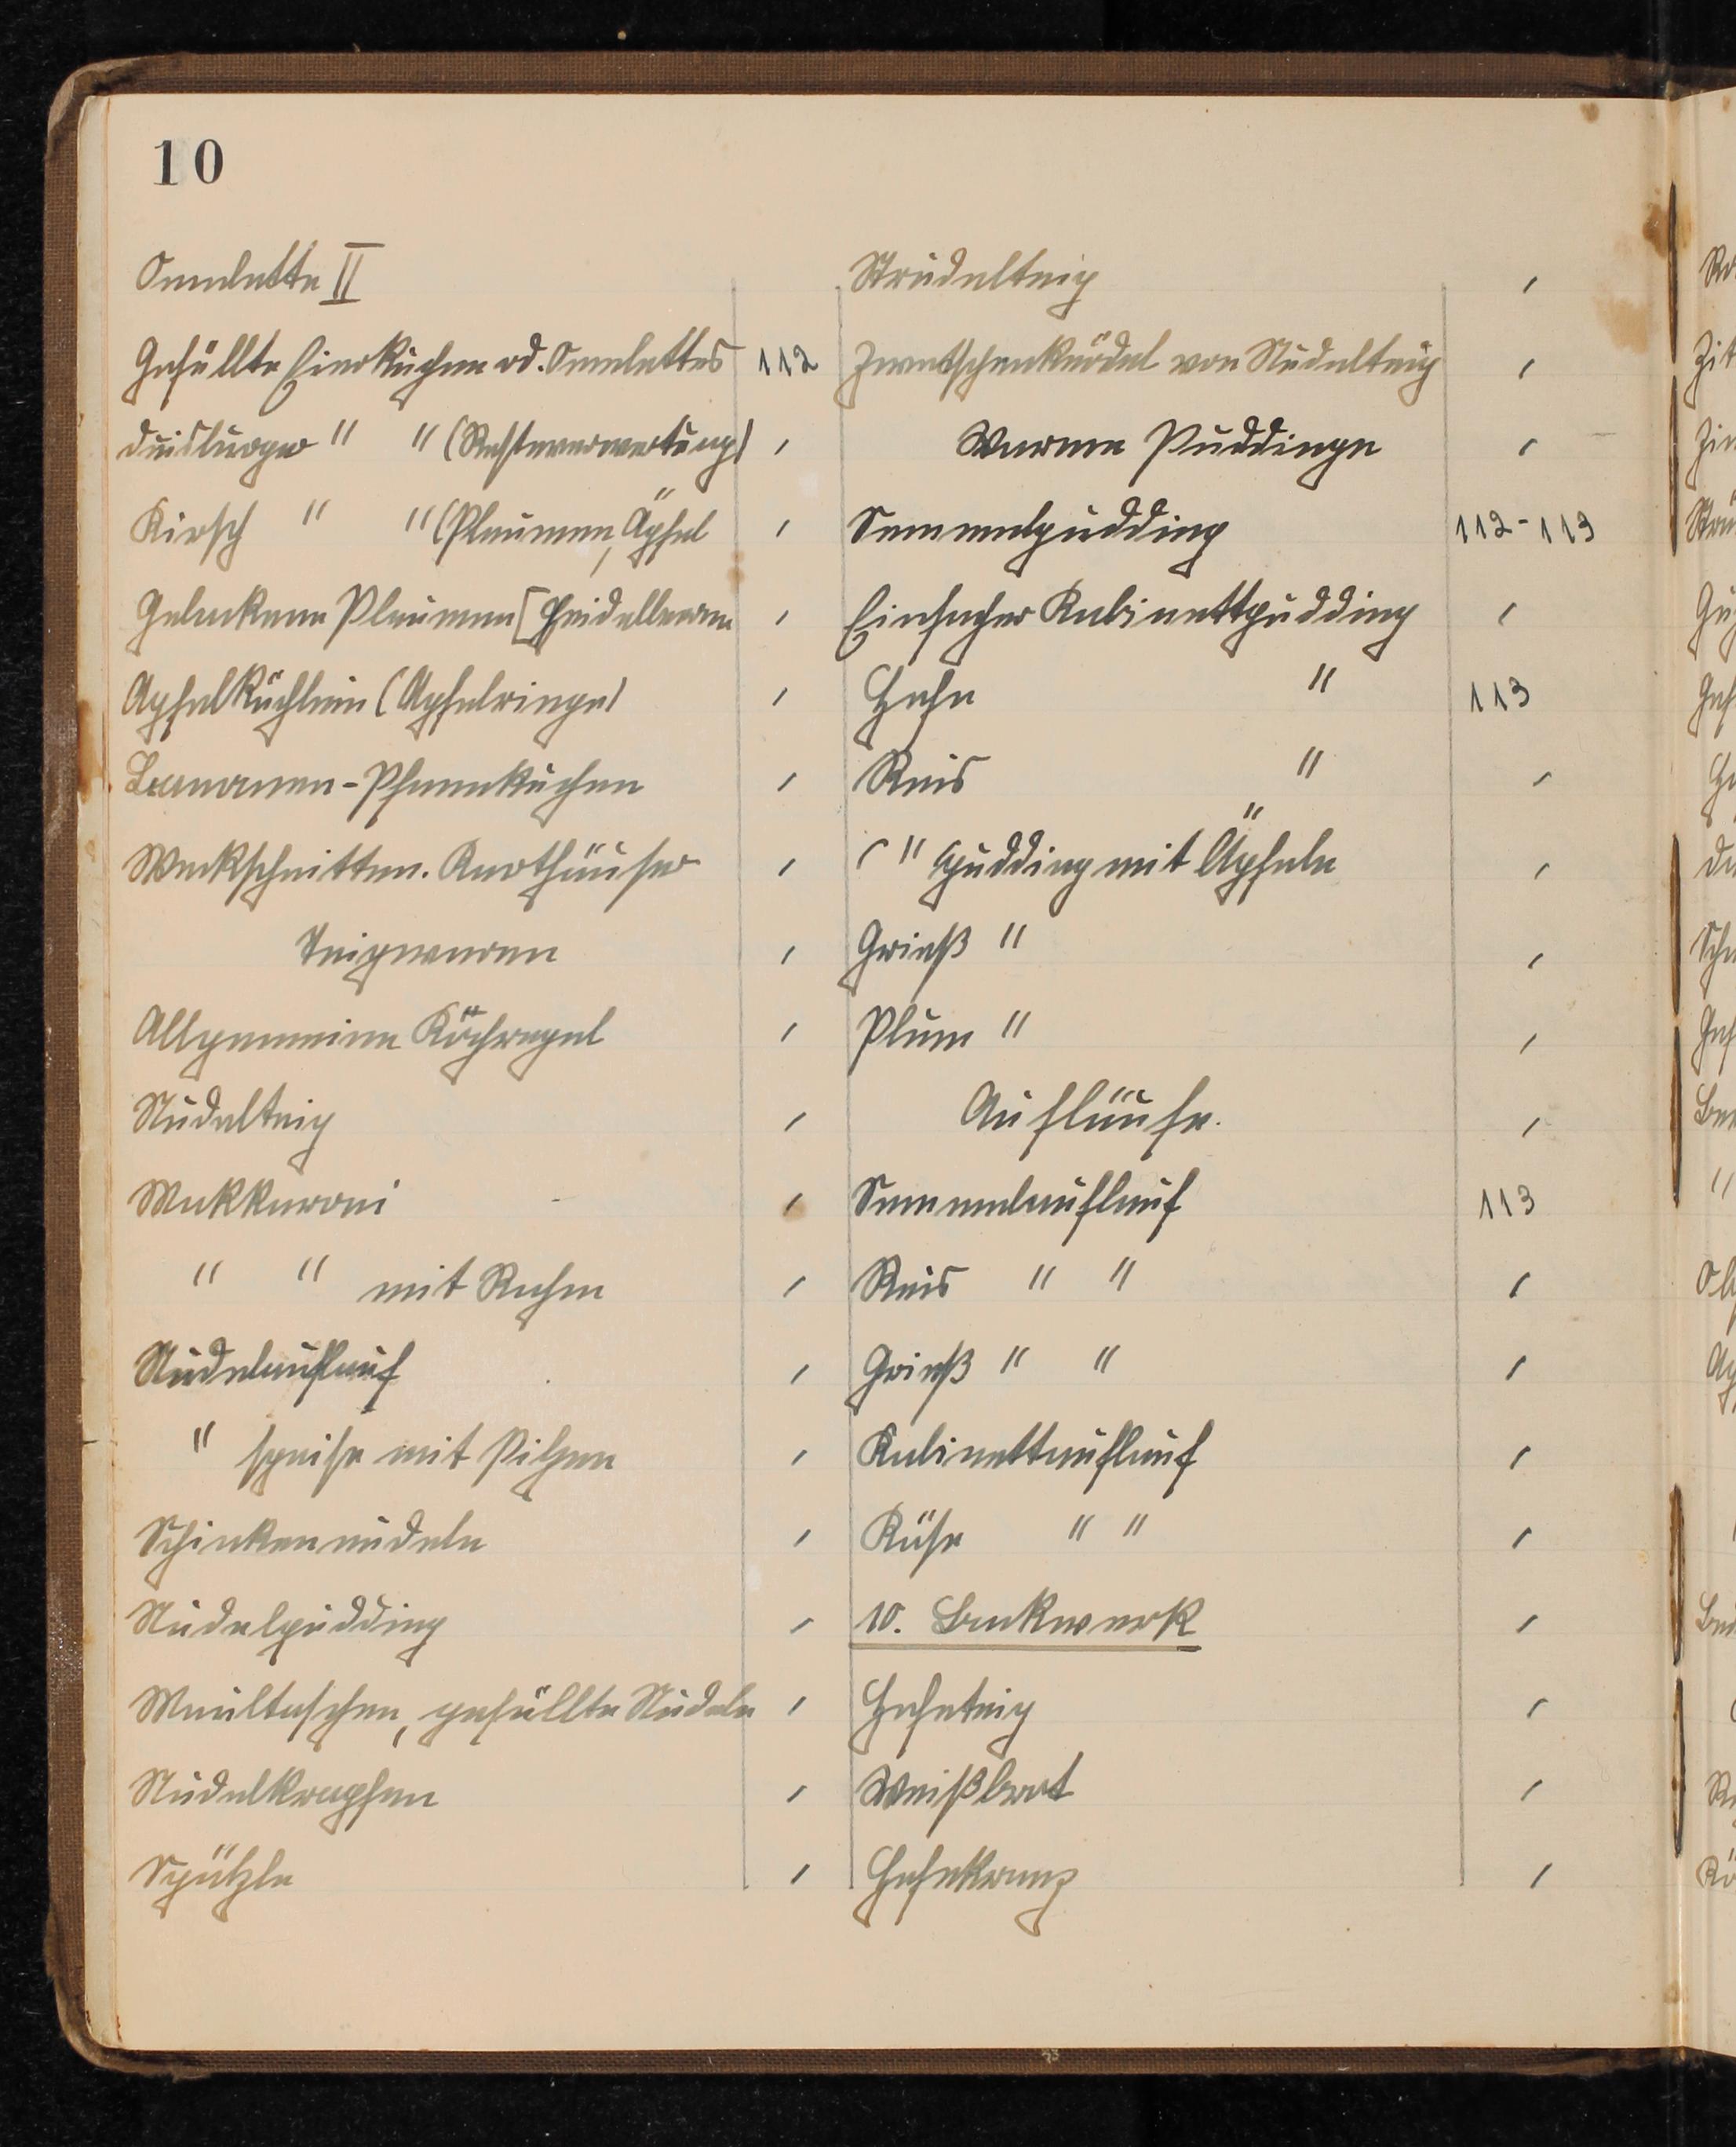 10
Omelette II
Gefüllte Eierkuchen od. Omelettes 112
Duisburger " " (Resteverwertung) ,
Kirsch " " (Pflaumen, Äpfel ,
Gebackene Pflaumen [Heidelbeeren ,
Apfelküchlein (Apfelringe) ,
Bananen-Pfannkuchen ,
Weckschnitten. Karthäuser ,
Teigwaren ,
Allgemeine Kochregel ,
Nudelteig ,
Makkaroni ,
" " mit Rahm ,
Nudelauflauf ,
" speise mit Pilzen ,
Schinkennudeln ,
Nudelpudding ,
Maultaschen, gefüllte Nudeln ,
Nudelkrapfen ,
Spätzle ,
Strudelteig ,
Zwetschenknödel von Nudelteig ,
Warme Puddinge ,
Semmelpudding 112-113
Einfacher Kabinettpudding ,
Hefe " 113
Reis " ,
" pudding mit Äpfeln ,
Grieß " ,
Plum " ,
Aufläufe. ,
Semmelauflauf 113
Reis " " ,
Grieß " " ,
Kabinettauflauf ,
Käse " " ,
10. Backwerk ,
Hefeteig ,
Weißbrot ,
Hefekranz ,